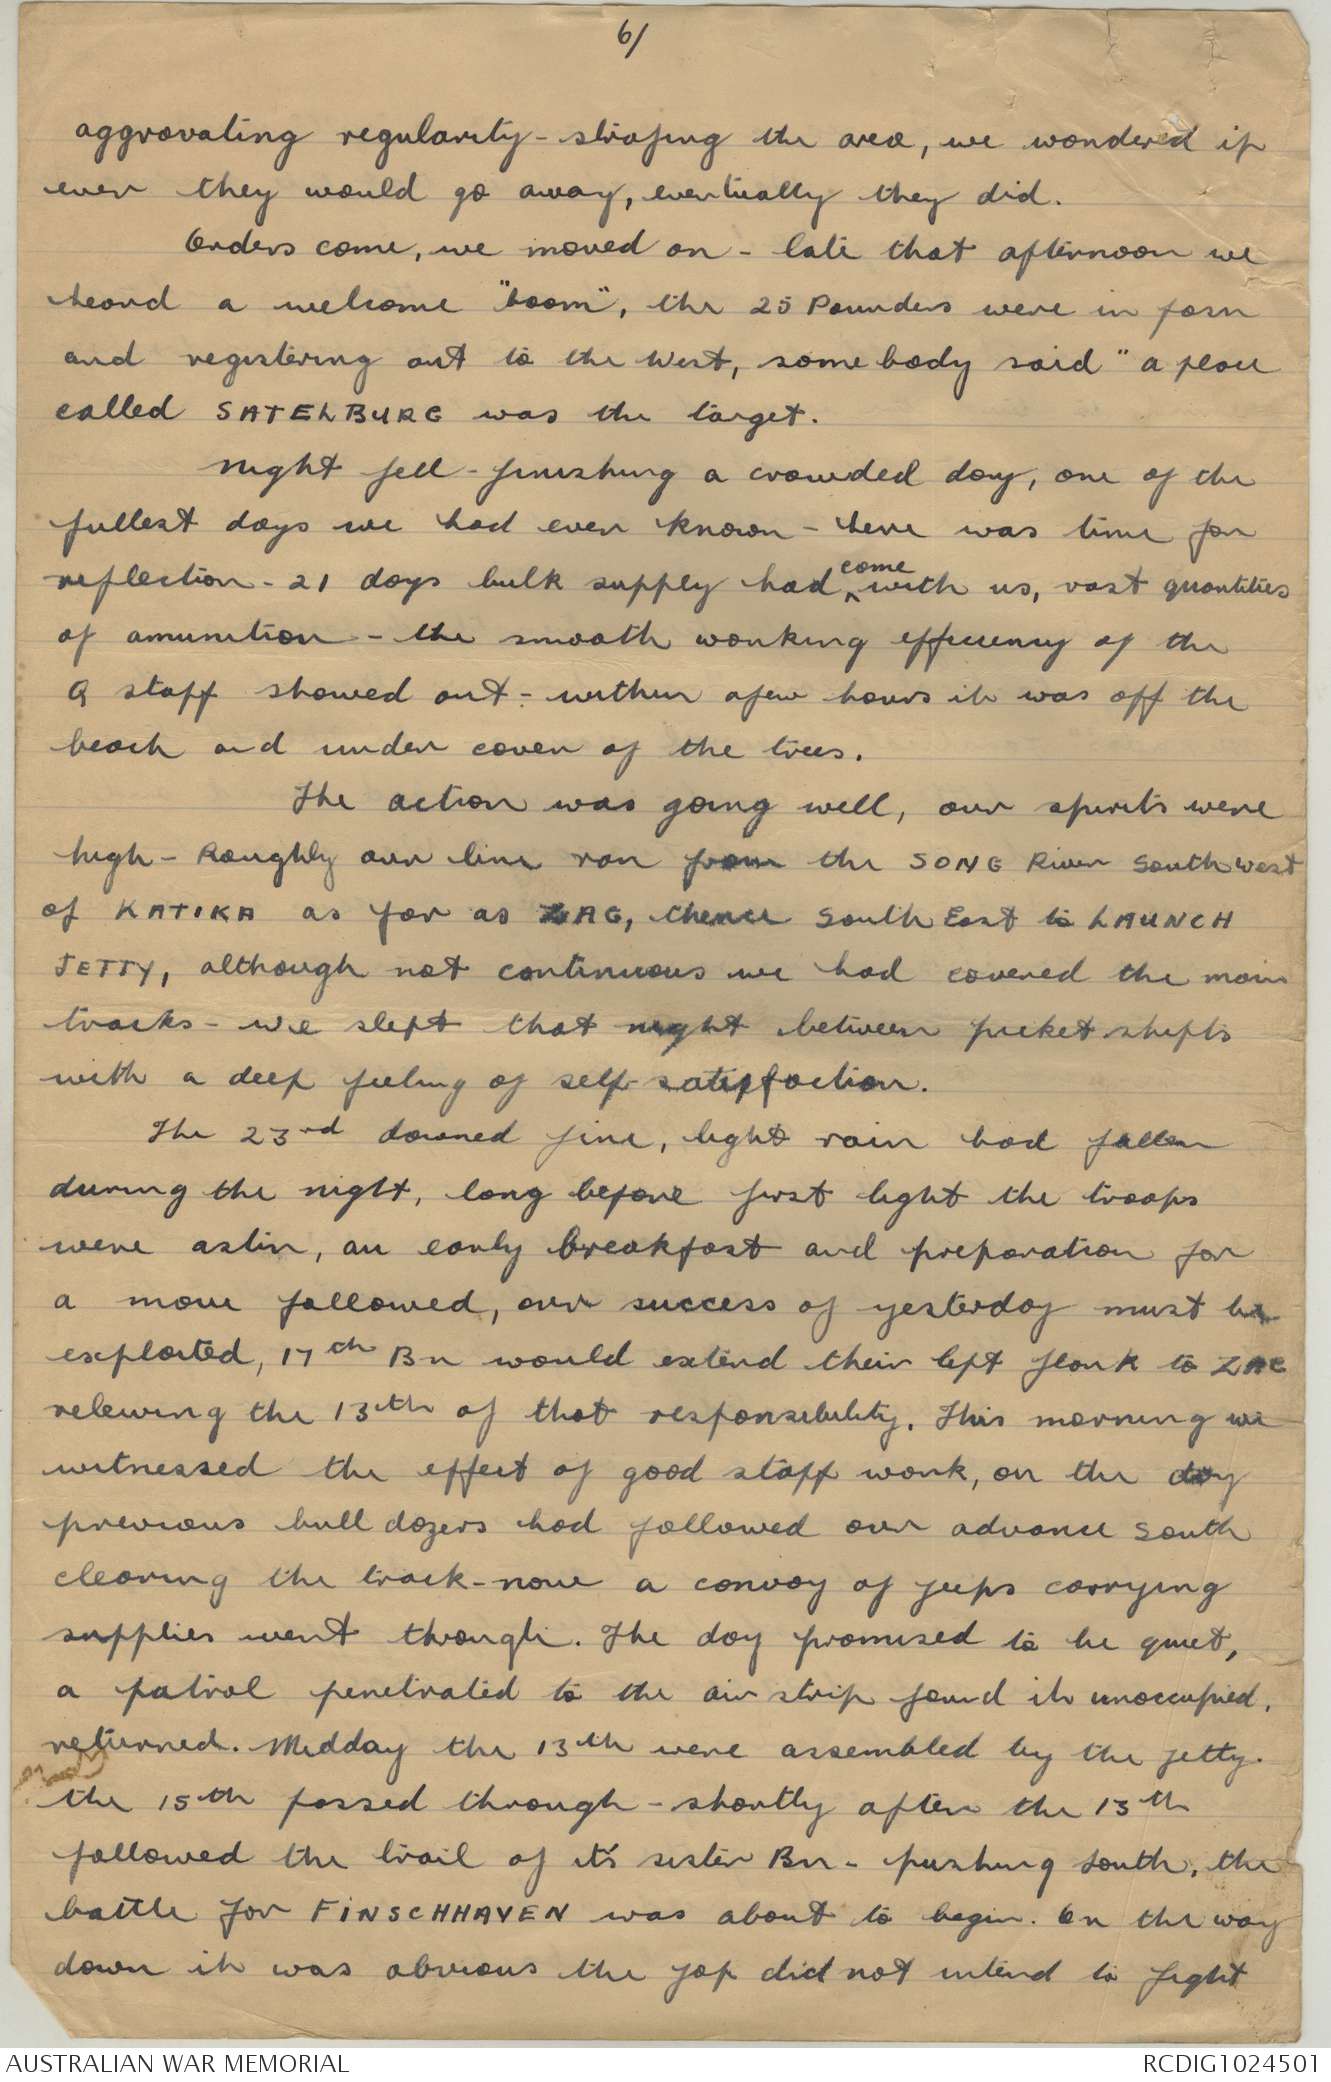 6/
aggravating regularity - strafing the area, we wondered if
ever they would go away, eventually they did.
Orders come, we moved on - late that afternoon we
heard a welcome "boom", the 25 Pounders were in form
and registering out to the West, somebody said "a place
called SATELBURG was the target.
Night fell - finishing a crowded day, one of the
fullest days we had ever known - here was time for
reflection - 21 days bulk supply had come with us, vast quantities
of amunition - the smooth working efficiency of the
Q staff showed out - within afew hours it was off the
beach and under cover of the trees.
The action was going well, our spirits were
high - Roughly our line ran from the SONG River South West
of KATIKA as far as ZAG, thence South East to LAUNCH
JETTY, although not continuous we had covered the main
tracks - we slept that night between picket shifts
with a deep feeling of self satisfaction.
The 23rd dawned fine, light rain had fallen
during the night, long before first light the troops
were astir, an early breakfast and preparation for
a move followed, our success of yesterday must be
exploited, 17th Bn would extend their left flank to ZAG
relewing the 13th of that responsibility. This morning we
witnessed the effect of good staff work, on the day
previous bull dozers had followed our advance South
clearing the track - now a convoy of jeeps carrying
supplies went through. The day promised to be quiet,
a patrol penetrated to the air strip found it unoccupied,
returned. Midday the 13th were assembled by the jetty.
the 15th passed through - shortly after the 13th
followed the trail of it's sister Bn - pushing South, the
battle for FINSCHHAVEN was about to begin. On the way
down it was obvious the jap did not intend to fight
AUSTRALIAN WAR MEMORIAL
RCDIG1024501